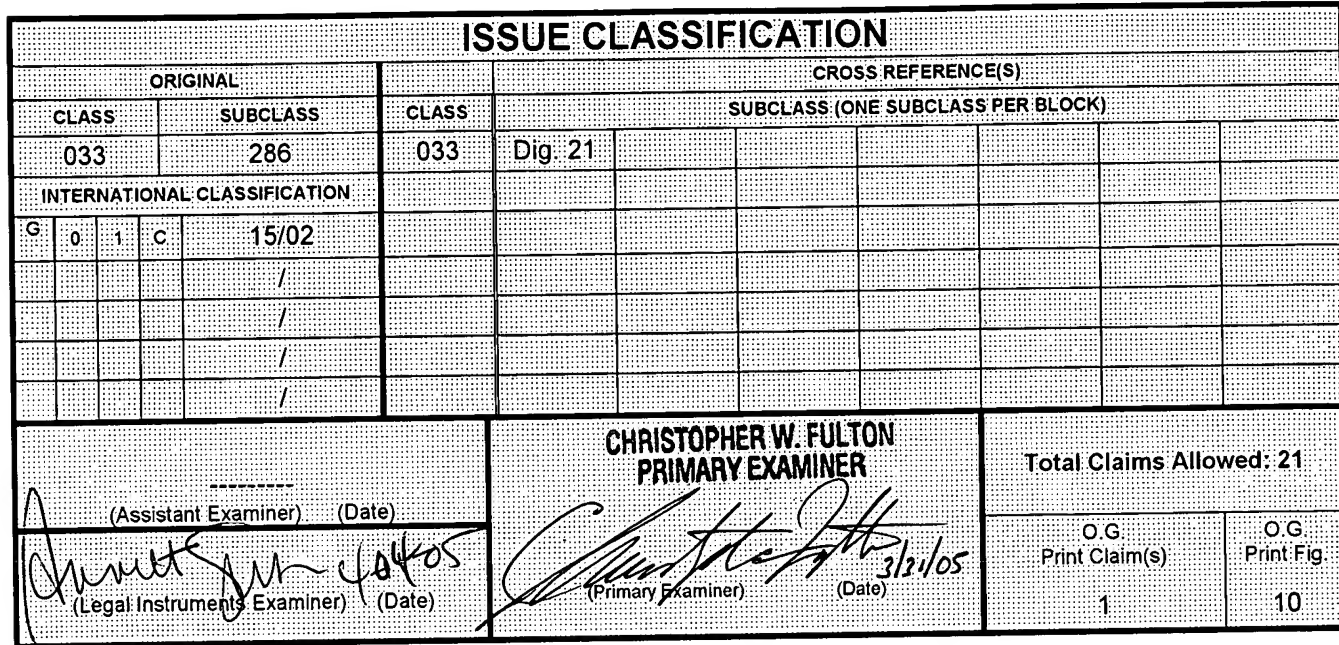 ISSUE CLASSIFICATION
ORIGINAL
CROSS REFERENCE(S)
CLASS SUBCLASS CLASS SUBCLASS (ONE SUBCLASS PER BLOCK)
033 286 033 Dig. 21
INTERNATIONAL CLASSIFICATION
G 0 1 C 15/02
/
/
/
/
---------
(Assistant Examiner) (Date)
(Legal Instruments Examiner) (Date)
CHRISTOPHER W. FULTON
PRIMARY EXAMINER
3/31/05
(Primary Examiner) (Date)
Total Claims Allowed: 21
O.G.
Print Claim(s)
1
O.G.
Print Fig.
10